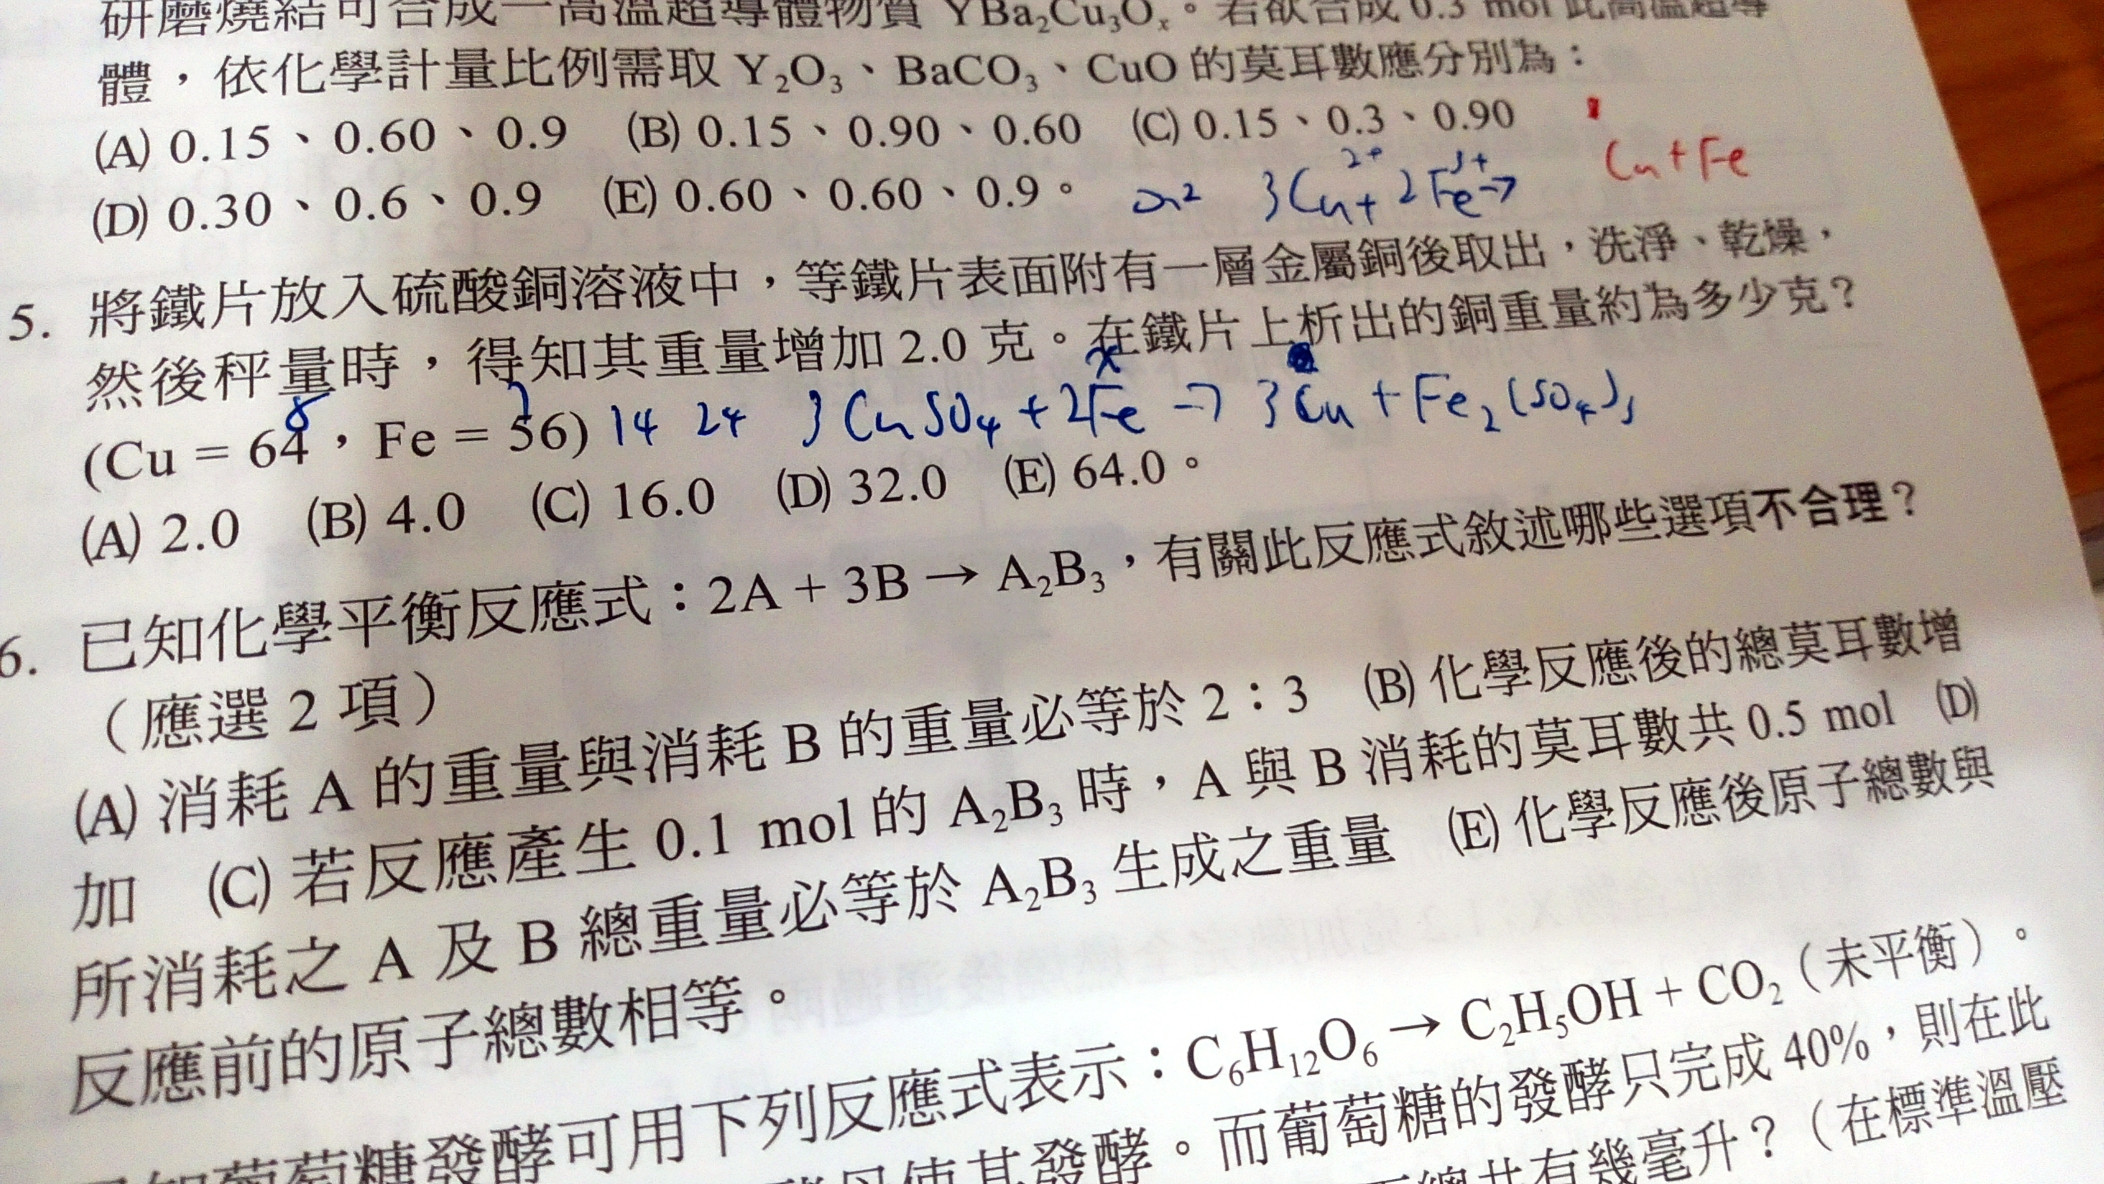 研磨燒結可合成一高溫超導體物質 YBa₂Cu₃Oₓ。若欲合成 0.3 mol 此高溫超導
體，依化學計量比例需取 Y₂O₃、BaCO₃、CuO 的莫耳數應分別為：
(A) 0.15、0.60、0.9 (B) 0.15、0.90、0.60 (C) 0.15、0.3、0.90
Cu+Fe
(D) 0.30、0.6、0.9 (E) 0.60、0.60、0.9。
3Cu²⁺+2Fe³⁺→
5. 將鐵片放入硫酸銅溶液中，等鐵片表面附有一層金屬銅後取出，洗淨、乾燥，
然後秤量時，得知其重量增加 2.0 克。在鐵片上析出的銅重量約為多少克？
x
8 7
(Cu = 64，Fe = 56) 14 24 3CuSO₄+2Fe→3Cu+Fe₂(SO₄)₃
(A) 2.0 (B) 4.0 (C) 16.0 (D) 32.0 (E) 64.0。
6. 已知化學平衡反應式：2A + 3B → A₂B₃，有關此反應式敘述哪些選項不合理？
（應選 2 項）
(A) 消耗 A 的重量與消耗 B 的重量必等於 2：3 (B) 化學反應後的總莫耳數增
加 (C) 若反應產生 0.1 mol 的 A₂B₃ 時，A 與 B 消耗的莫耳數共 0.5 mol (D)
所消耗之 A 及 B 總重量必等於 A₂B₃ 生成之重量 (E) 化學反應後原子總數與
反應前的原子總數相等。
葡萄糖發酵可用下列反應式表示：C₆H₁₂O₆ → C₂H₅OH + CO₂（未平衡）。
其發酵。而葡萄糖的發酵只完成 40%，則在此
共有幾毫升？（在標準溫壓